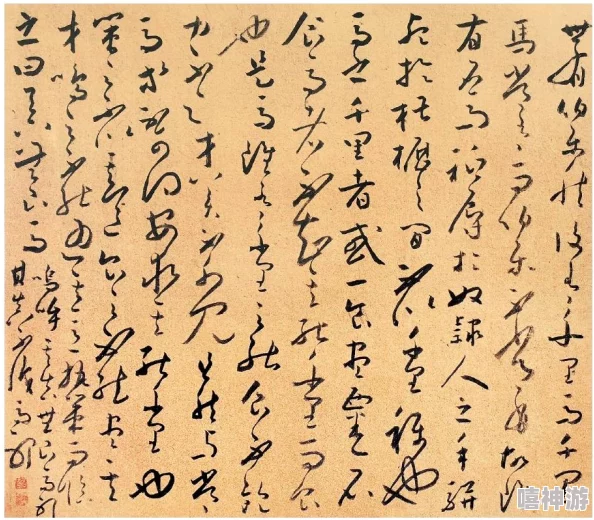 世有伯樂然後有千里馬千里
馬常有而伯樂不常有故雖
有名馬祇辱於奴隸人之手駢
死於槽櫪之間不以千里稱也
馬之千里者或一食盡粟一石
食馬者不知其能千里而食
也是馬雖有千里之能食不飽
力不足才美不外見且欲與常
馬等不可得安求其能千里也
策之不以其道食之不能盡其
材鳴之不能通其意執策而臨
之曰天下無馬
嗚呼其真無馬邪
其真不知馬
嘻神游